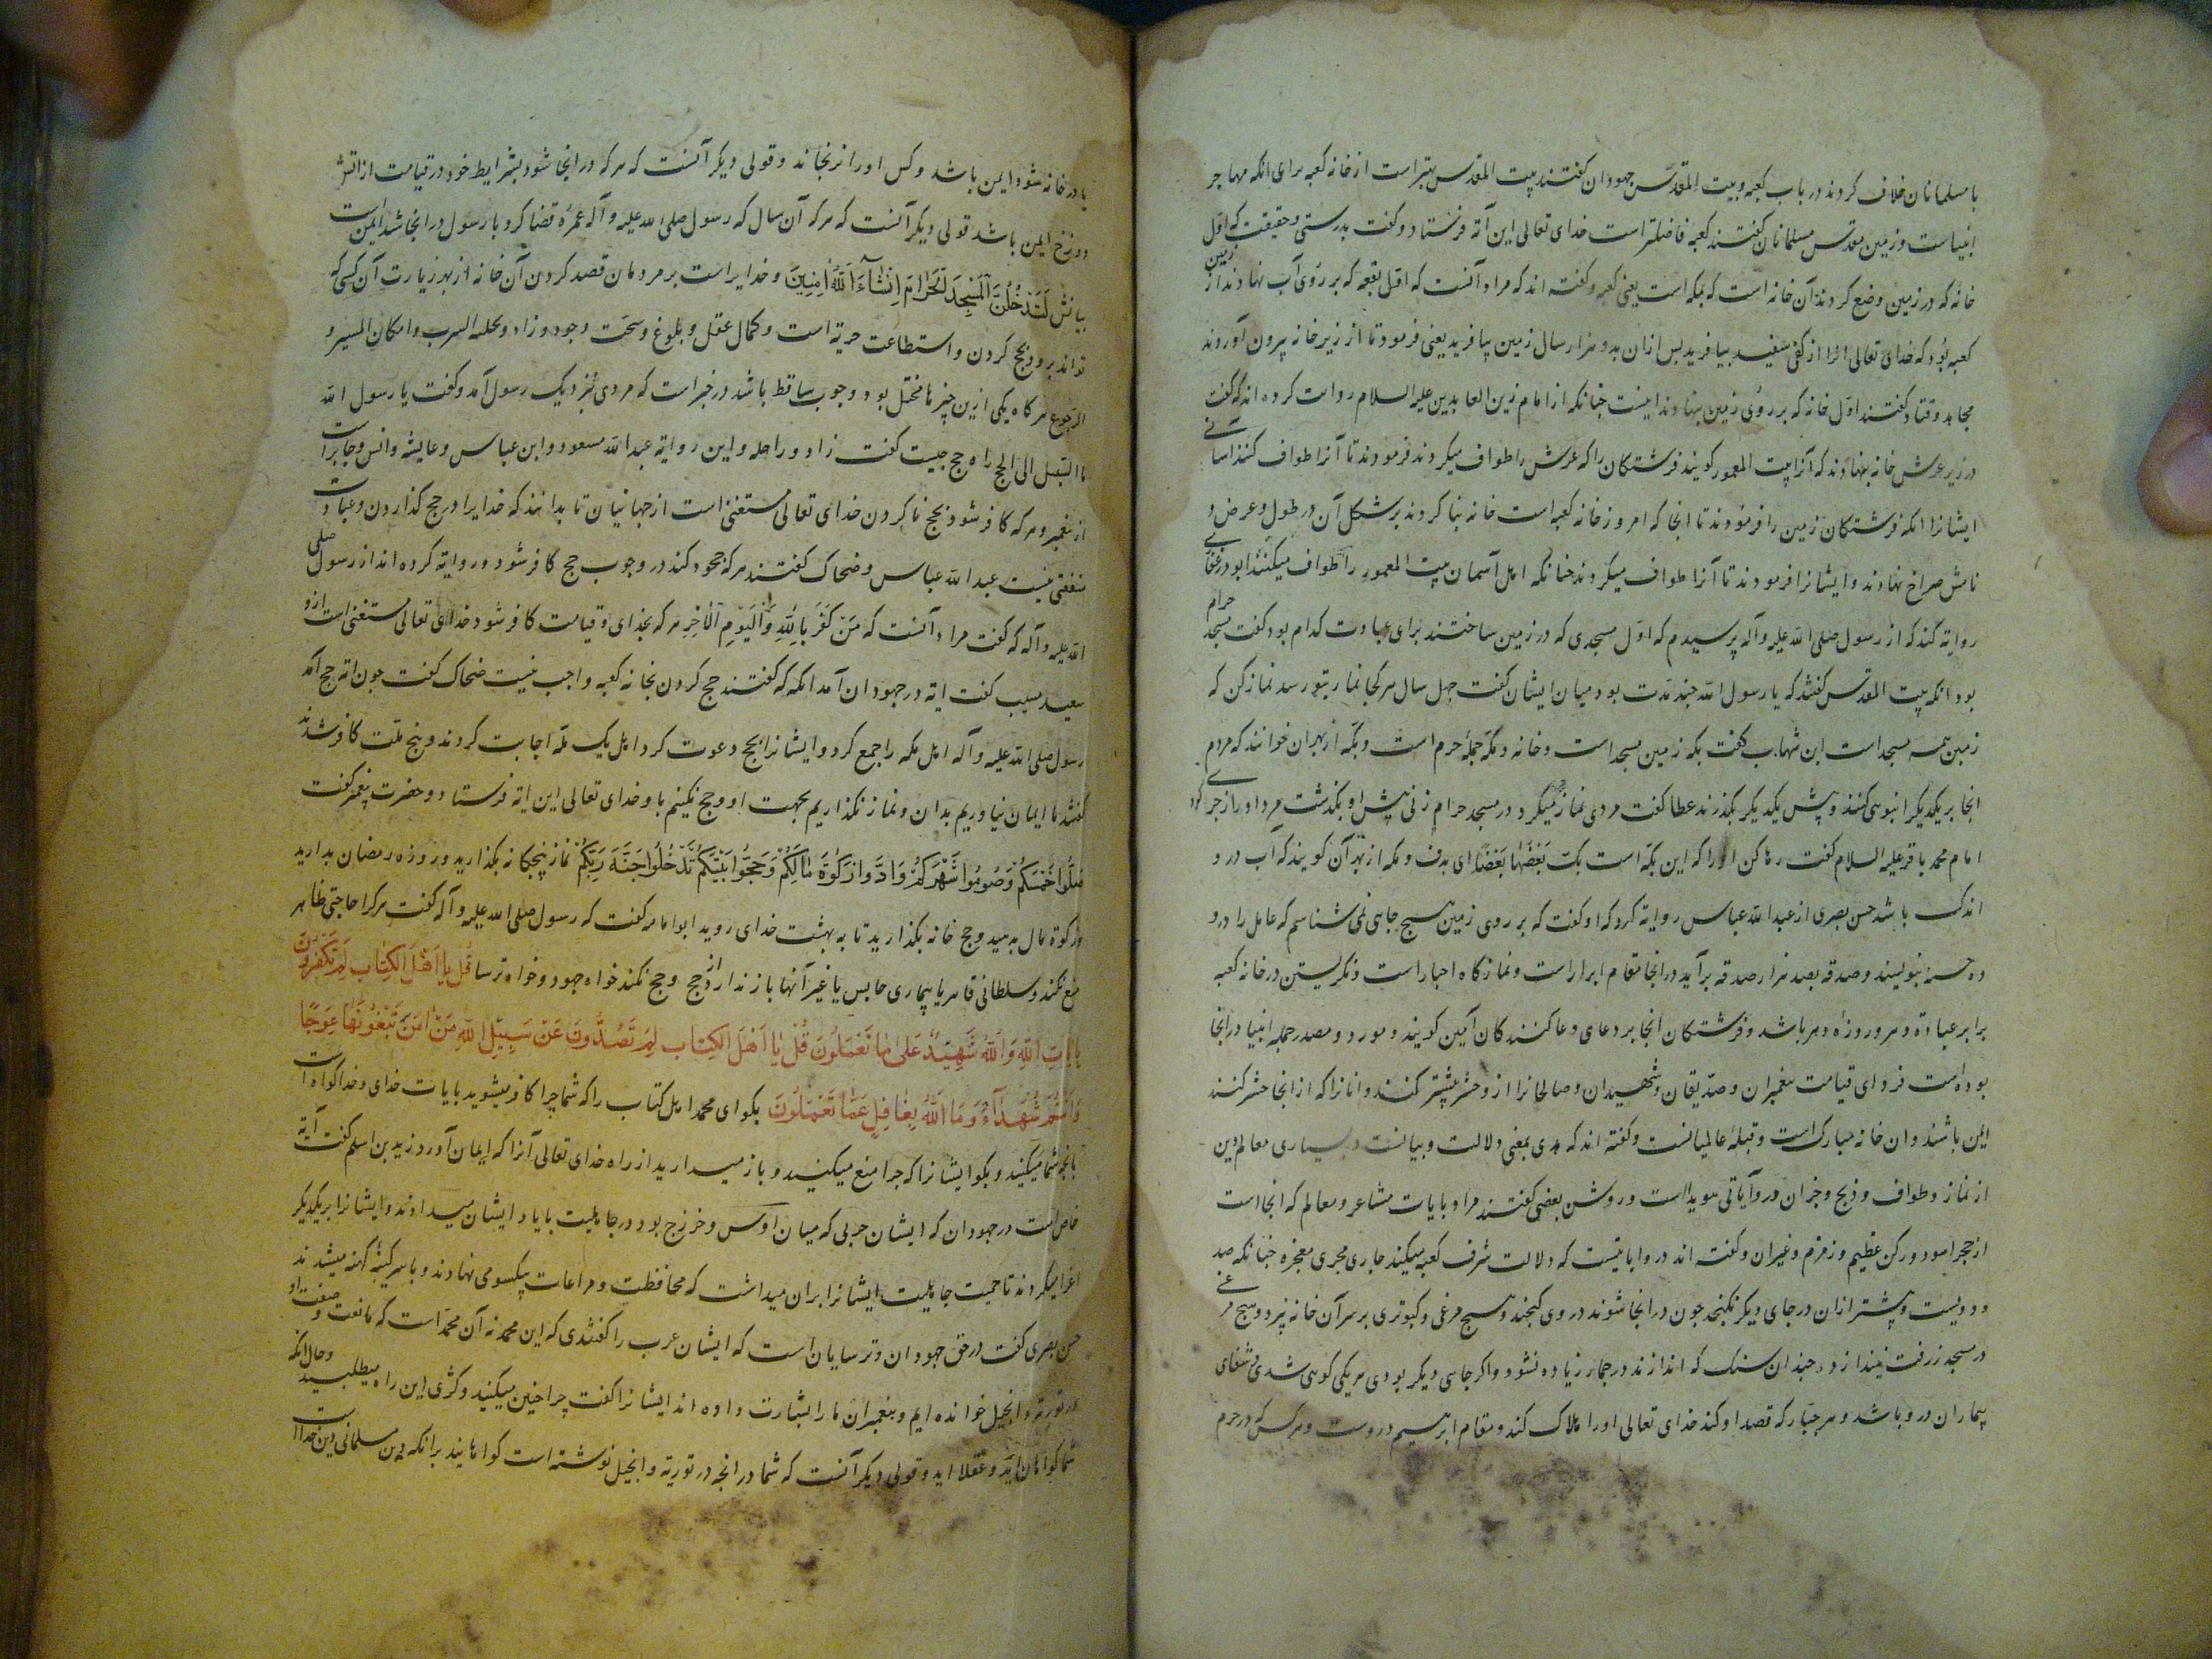 با مسلمانان خلاف کردند در باب کعبه و بیت المقدس جهودان گفتند بیت المقدس بهتر است از خانه کعبه برای انکه مهاجر
انبیاست و زمین مقدس مسلمانان گفتند کعبه فاضلتر است خدای تعالی این آیه فرستاد و گفت بدرستی و حقیقت که اول
خانه که در زمین وضع کردند آن خانه است که بمکه است یعنی کعبه و گفته اند که مراد آنست که اول بقعه که بر روی آب نهادند از زمین
کعبه بود که خدای تعالی انرا از کفی سفید بیافرید پس ازان بدو هزار سال زمین بیافرید یعنی فرمود تا از زیر خانه بیرون آوردند
مجاهد و قتاده گفتند اول خانه که بر روی زمین بنهادند اینست چنانکه از امام زین العابدین علیه السلام روایت کرده اند که گفت
در زیر عرش خانه بنهادند که آنرا بیت المعمور گویند فرشتگان را که عرش را طواف میکردند فرمودند تا آنرا طواف کنند
ایشانرا انکه فرشتگان زمین را فرمودند تا انجا که امروز خانه کعبه است خانه بنا کردند بر شکل آن در طول و عرض و
نامش صراح نهادند و ایشانرا فرمودند تا آنرا طواف میکردند چنانکه اهل آسمان بیت المعمور را طواف میکنند ابوذر غفاری
روایه کند که از رسول صلی الله علیه و آله پرسیدم که اول مسجدی که در زمین ساختند برای عبادت کدام بود گفت مسجد حرام
بود انکه بیت المقدس گفتند که یا رسول الله چند مدت بود میان ایشان گفت چهل سال هر کجا نماز بتو رسد نماز کن که
زمین همه مسجد است ابن شهاب گفت بکه زمین مسجد است و خانه و مکه جمله حرم است و بکه از بهر ان خوانند که مردم
انجا بر یکدیگر انبوهی کنند و پیش یکدیگر بگذرند عطا گفت مردی نماز میکرد در مسجد حرام زنی پیش او بگذشت مرد او را زجر کرد
امام محمد باقر علیه السلام گفت رها کن او را که این بکه است بکت بعضها بعضا ای یدف و مکه از بهر آن گویند که آب درو
اندک باشد حسن بصری از عبدالله عباس روایه کرد که او گفت که بر روی زمین هیچ جای نمی شناسم که عامل را درو
ده حسنه بنویسند و صدقه بصد هزار صدقه برآید در انجا مقام ابرار است و نمازگاه اخیار است و نگریستن در خانه کعبه
برابر عبادة دهر و روزه دهر باشد و فرشتگان انجا بر دعای دعاکنندگان آمین گویند و مورد و مصدر جمله انبیا در انجا
بوده است فردای قیامت پیغمبران و صدیقان و شهیدان و صالحانرا از و حشر بیشتر کنند و انانرا که از انجا حشر کنند
ایمن باشند و ان خانه مبارک است و قبله عالمیانست و گفته اند که هدی بمعنی دلالت و بیانست و بسیاری معالم دین
از نماز و طواف و ذبح و جز ان درو آیاتی هویداست و روشن بعضی گفتند مراد بایات مشاعر و معالم که انجا است
از حجر اسود و رکن عظیم و زمزم و غیر ان و گفته اند درو ایاتیست که دلالت شرف کعبه میکند جاری مجری معجزه چنانکه صد
و دویست و بیشتر ازان در جای دیگر نگنجد چون در انجا شوند دروی گنجند و هیچ مرغی و کبوتری بر سر آن خانه نپرد و هیچ
در مسجد زرفت نیندازد و چندان سنگ که اندازند در جمار زیاده نشود و اگر جاهی دیگر بودی هر یکی کوهی شدی شفای
بیماران درو باشد و هر جبار که قصد او کند خدای تعالی او را هلاک کند و مقام ابرهیم دروست و هر کس که در حرم
یا در خانه شود ایمن باشد و کس او را نرنجاند و قولی دیگر آنست که هر که در انجا شود بشرایط خود در قیامت از اتش
دوزخ ایمن باشد قولی دیگر آنست که هر که آن سال که رسول صلی الله علیه و آله عمره قضا کرد با رسول در انجا شد ایمن است
بیانش لَتَدْخُلُنَّ الْمَسْجِدَ الْحَرَامَ اِنْشَاءَ اللَّهُ اٰمِنِینَ و خدایراست بر مردمان قصد کردن آن خانه از بهر زیارت آن کسی که
تواند برو بحج کردن و استطاعت حریة است و کمال عقل و بلوغ و صحت و وجود زاد و راحله السرب و امکان المسیر و
الرجوع هرگاه یکی ازین چیزها مختل بود وجوب ساقط باشد در خبر است که مردی نزدیک رسول آمد و گفت یا رسول الله
ما السبیل الی الحج راه حج چیست گفت زاد و راحله و این روایه عبدالله مسعود و ابن عباس و عایشه و انس و جابر است
از پیغمبر و هر که کافر شود بحج ناکردن خدای تعالی مستغنی است از جهانیان تا بدانند که خدایرا در حج گذاردن و عبادت
منفعتی نیست عبدالله عباس و ضحاک گفتند هر که جحود کند در وجوب حج کافر شود و روایه کرده اند از رسول صلی
الله علیه و آله که گفت مراد آنست که مَنْ کَفَرَ بِاللَّهِ وَالْیَوْمِ الْاٰخِرِ هر که بخدای و قیامت کافر شود خدای تعالی مستغنی است ازو
سعید مسیب گفت ایه در جهودان آمد انکه که گفتند حج کردن بخانه کعبه واجب نیست ضحاک گفت چون ایه حج آمد
رسول صلی الله علیه و آله اهل مکه را جمع کرد و ایشانرا بحج دعوت کرد اهل یک مله اجابت کردند و پنج ملت کافر شدند
گفتند ما ایمان نیاوریم بدان و نماز نگذاریم بجهت او و حج نکنیم با و خدای تعالی این ایه فرستاد و حضرت پیغمبر گفت
صَلُّوا خَمْسَکُمْ وَصُومُوا شَهْرَکُمْ وَاَدُّوا زَکٰوةَ مَالَکُمْ وَحَجُّوا بَیْتَکُمْ تَدْخُلُوا جَنَّةَ رَبِّکُمْ نماز پنجگانه بگذارید و روزه رمضان بدارید
و زکوة مال بدهید و حج خانه بگذارید تا به بهشت خدای روید ابوامامه گفت که رسول صلی الله علیه و آله گفت هر کرا حاجتی ظاهر
منع نکند و سلطانی قاهر یا بیماری حابس یا غیر آنها باز ندارد از حج و حج نکند خواه جهود و خواه ترسا قُلْ یٰا اَهْلَ الْکِتٰابِ لِمَ تَکْفُرُونَ
بِاٰیٰاتِ اللَّهِ وَاللَّهُ شَهِیدٌ عَلیٰ مٰا تَعْمَلُونَ قُلْ یٰا اَهْلَ الْکِتٰابِ لِمَ تَصُدُّونَ عَنْ سَبِیلِ اللَّهِ مَنْ اٰمَنَ تَبْغُونَهٰا عِوَجًا
وَاَنْتُمْ شُهَدَاءُ وَمَا اللَّهُ بِغٰافِلٍ عَمّٰا تَعْمَلُونَ بگوای محمد اهل کتاب را که شما چرا کافر میشوید بایات خدای و خدا گواه است
بانچه شما میکنید و بگو ایشانرا که چرا منع میکنید و باز میدارید از راه خدای تعالی آنرا که ایمان آورد زید بن اسلم گفت آیه
خاص است در جهودان که ایشان حربی که میان اوس و خزرج بود در جاهلیت بایاد ایشان میدادند و ایشانرا بر یکدیگر
اغرا میکردند تا حمیت جاهلیت ایشانرا بران میداشت که محافظت و مراعات یکسو می نهادند و با سر کینه کهنه میشدند
حسن بصری گفت در حق جهودان و ترسایان است که ایشان عرب را گفتندی که این محمد نه آن محمد است که ما نعت و صفت او
در توریه و انجیل خوانده ایم و پیغمبران ما را بشارت داده اند ایشانرا گفت چرا چنین میکنید و کژی این راه میطلبید و حال انکه
شما گواهان اید و عقلا اید و قولی دیگر آنست که شما در انچه در توریه و انجیل نوشته است گواهانید برانکه دین مسلمانی دین خدا است